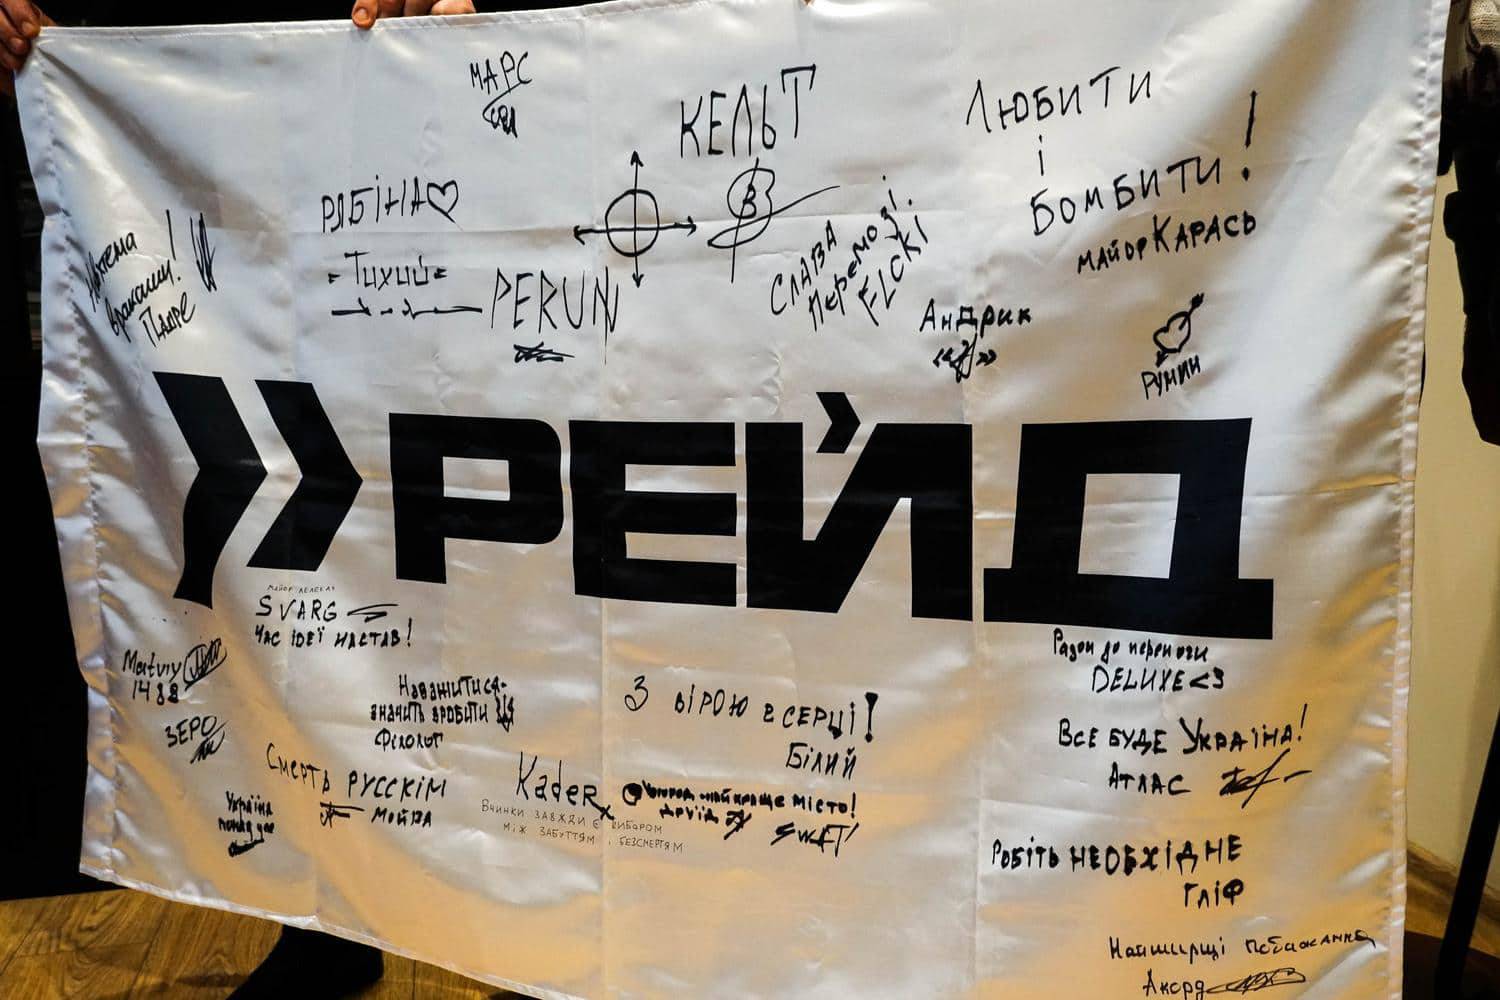 МАРС
КЕЛЬТ
ЛЮБИТИ
і
БОМБИТИ!
МАЙОР КАРАСЬ
РЯБІНА♡
-Тихий-
PERUN
СЛАВА
Перемозі.
Падре
АнДрик
Румин
»РЕЙД
SVARG
ЧАС ІДЕЇ НАСТАВ!
Matviy
1488
ЗЕРО
Наважитися-
значить зробити
Філолог
З вірою в серці!
Білий
Разом до перемоги
DELUXE<3
Все буде Україна!
Атлас
Смерть русскім
Мойра
Україна
понад усе
Kader
Вчинки завжди є вибором
між забуттям і безсмертям
найкраще місто!
друїд
SWAT
Робіть необхідне
Гліф
Найширіші побажання
Акорд